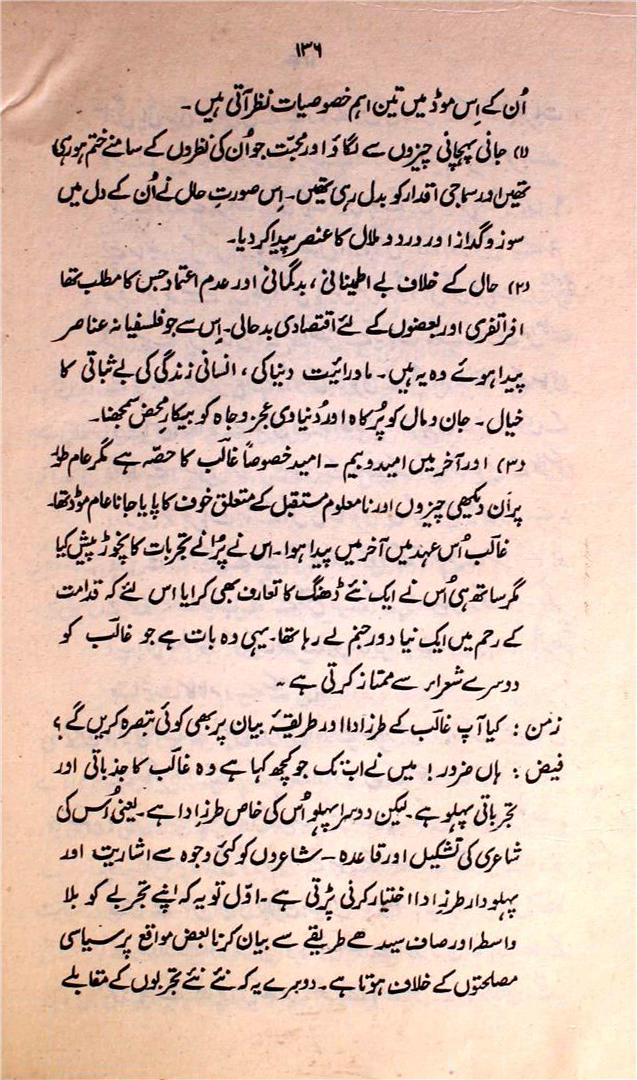 ۱۳۶
اُن کے اِس موڈ میں تین اہم خصوصیات نظر آتی ہیں ۔
(۱) جانی پہچانی چیزوں سے لگاؤ اور محبّت جو اُن کی نظروں کے سامنے ختم ہو رہی
تھیں اور سماجی اقدار کو بدل رہی تھیں۔ اِس صورتِ حال نے اُن کے دل میں
سوز و گداز اور درد و ملال کا عنصر پیدا کر دیا۔
(۲) حال کے خلاف بے اطمینانی ، بدگمانی اور عدم اعتماد جس کا مطلب تھا
افراتفری اور بعضوں کے لئے اقتصادی بدحالی۔ اِس سے جو فلسفیانہ عناصر
پیدا ہوئے وہ یہ ہیں ۔ ماورائیت دنیا کی ، انسانی زندگی کی بے ثباتی کا
خیال ۔ جان و مال کو پُرکاہ اور دُنیاوی عجز و جاہ کو بیکارِ محض سمجھنا۔
(۳) اور آخر میں امید و بیم ۔ امید خصوصاً غالبؔ کا حصّہ ہے مگر عام طور
پر اَن دیکھی چیزوں اور نامعلوم مستقبل کے متعلق خوف کا پایا جانا عام موڈ تھا۔
غالب اُس عہد میں آخر میں پیدا ہوا۔ اس نے پُرانے تجربات کا نچوڑ پیش کیا
مگر ساتھ ہی اُس نے ایک نئے ڈھنگ کا تعارف بھی کرایا اس لئے کہ قدامت
کے رحم میں ایک نیا دور جنم لے رہا تھا۔ یہی وہ بات ہے جو غالبؔ کو
دوسرے شعراء سے ممتاز کرتی ہے ۔
زمن : کیا آپ غالبؔ کے طرزِ ادا اور طریقۂ بیان پر بھی کوئی تبصرہ کریں گے ؟
فیض : ہاں ضرور ! میں نے اب تک جو کچھ کہا ہے وہ غالبؔ کا جذباتی اور
تجرباتی پہلو ہے ۔ لیکن دوسرا پہلو اُس کی خاص طرزِ ادا ہے ۔ یعنی اُس کی
شاعری کی تشکیل اور قاعدہ ۔ شاعروں کو کئی وجوہ سے اشاریت اور
پہلودار طرزِ ادا اختیار کرنی پڑتی ہے ۔ اوّل تو یہ کہ اپنے تجربے کو بلا
واسطہ اور صاف سیدھے طریقے سے بیان کرنا بعض مواقع پر سیاسی
مصلحتوں کے خلاف ہوتا ہے ۔ دوسرے یہ کہ نئے نئے تجربوں کے مقابلے